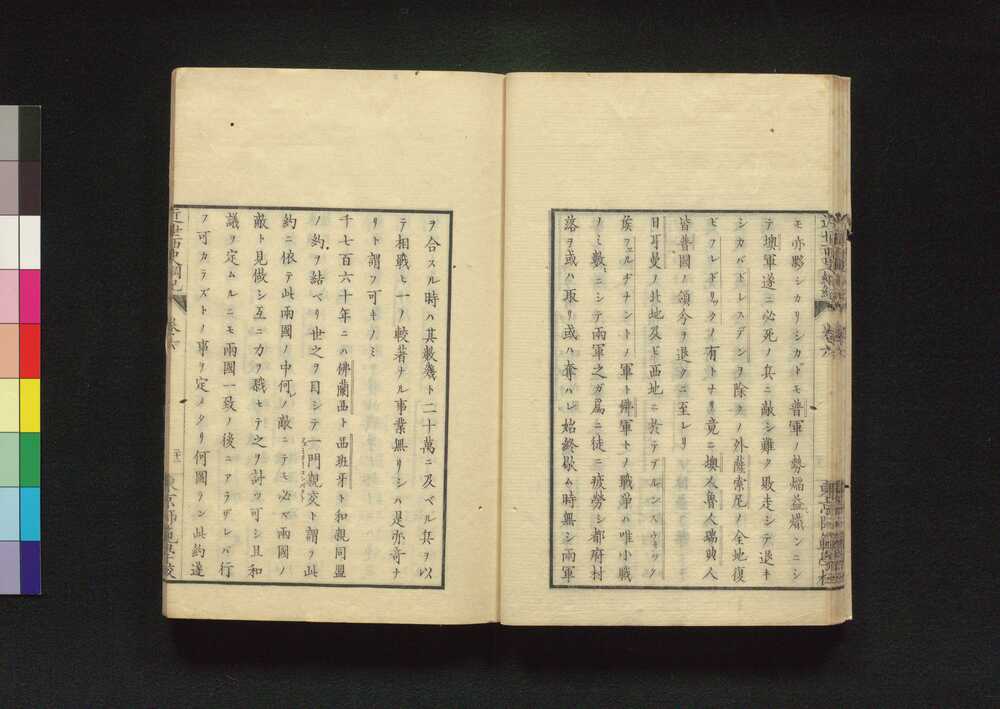 モ亦夥シカリシカドモ普軍ノ勢焔益熾ンニシ
テ墺軍遂ニ必死ノ兵ニ敵シ難ク敗走シテ退キ
シカバドレスデンヲ除クノ外薩索尼ノ全地復
ビフレドリックノ有トナリ竟ニ墺人魯人瑞典人
皆普國ノ領分ヲ退クニ至レリ
日耳曼ノ北地及ビ西地ニ於テブルンスウィック
侯フェルヂナントノ軍ト佛軍トノ戰爭ハ唯小戰
ノミ數ニシテ兩軍之ガ爲ニ徒ニ疲勞シ都府村
落ヲ或ハ取リ或ハ奪ハレ始終歇ム時無シ兩軍
ヲ合スル時ハ其數幾ト二十萬ニ及ベル兵ヲ以
テ相戰ヒ一ノ較著ナル事業無リシハ是亦奇ナ
リト謂フ可キノミ
千七百六十年ニハ佛蘭西ト西班牙ト和親同盟
ノ約ヲ結ベリ世之ヲ目シテ一門親交ト謂フ此
約ニ依テ此兩國ノ中何ノ敵ニテモ必ズ兩國ノ
敵ト見做シ互ニ力ヲ戮セテ之ヲ討ツ可シ且和
議ヲ定ムルニモ兩國一致ノ後ニアラザレバ行
フ可カラズトノ事ヲ定メタリ何圖ラン此約遂
近世西史綱紀
卷六
東京師範學校